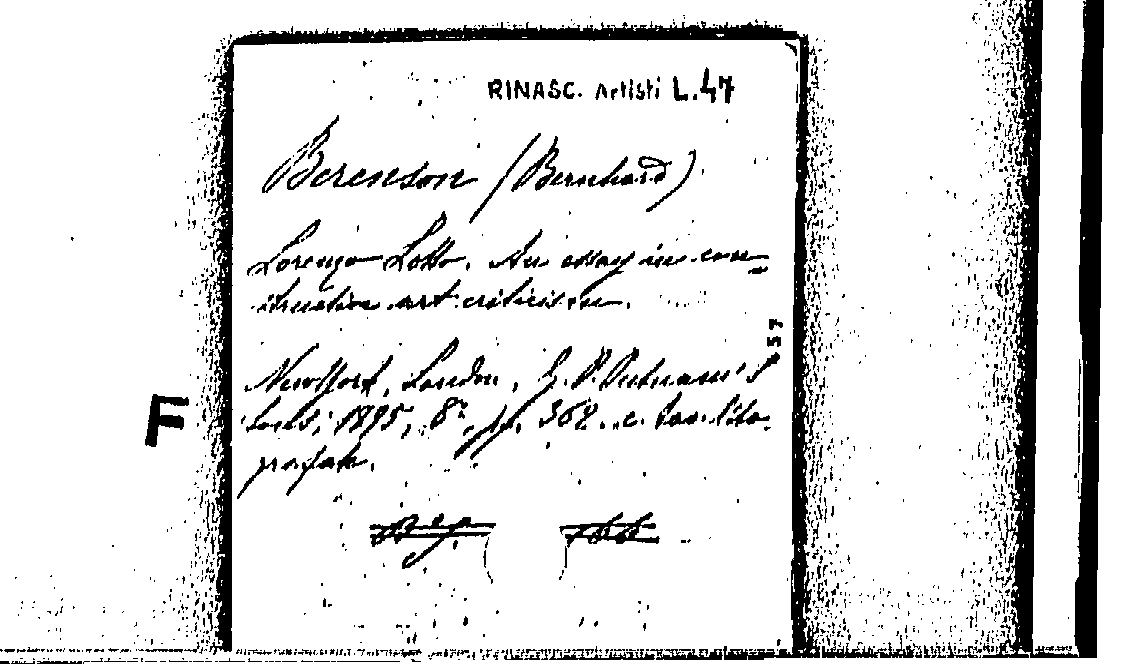 RINASC. Artisti L.47
Berenson (Bernhard)
Lorenzo Lotto. An essay in con=
struction art criticism.
57
New York, London, G. P. Putnam's
Sons, 1895, 8º, pp. 362. c. tav. lito-
grafate.
F